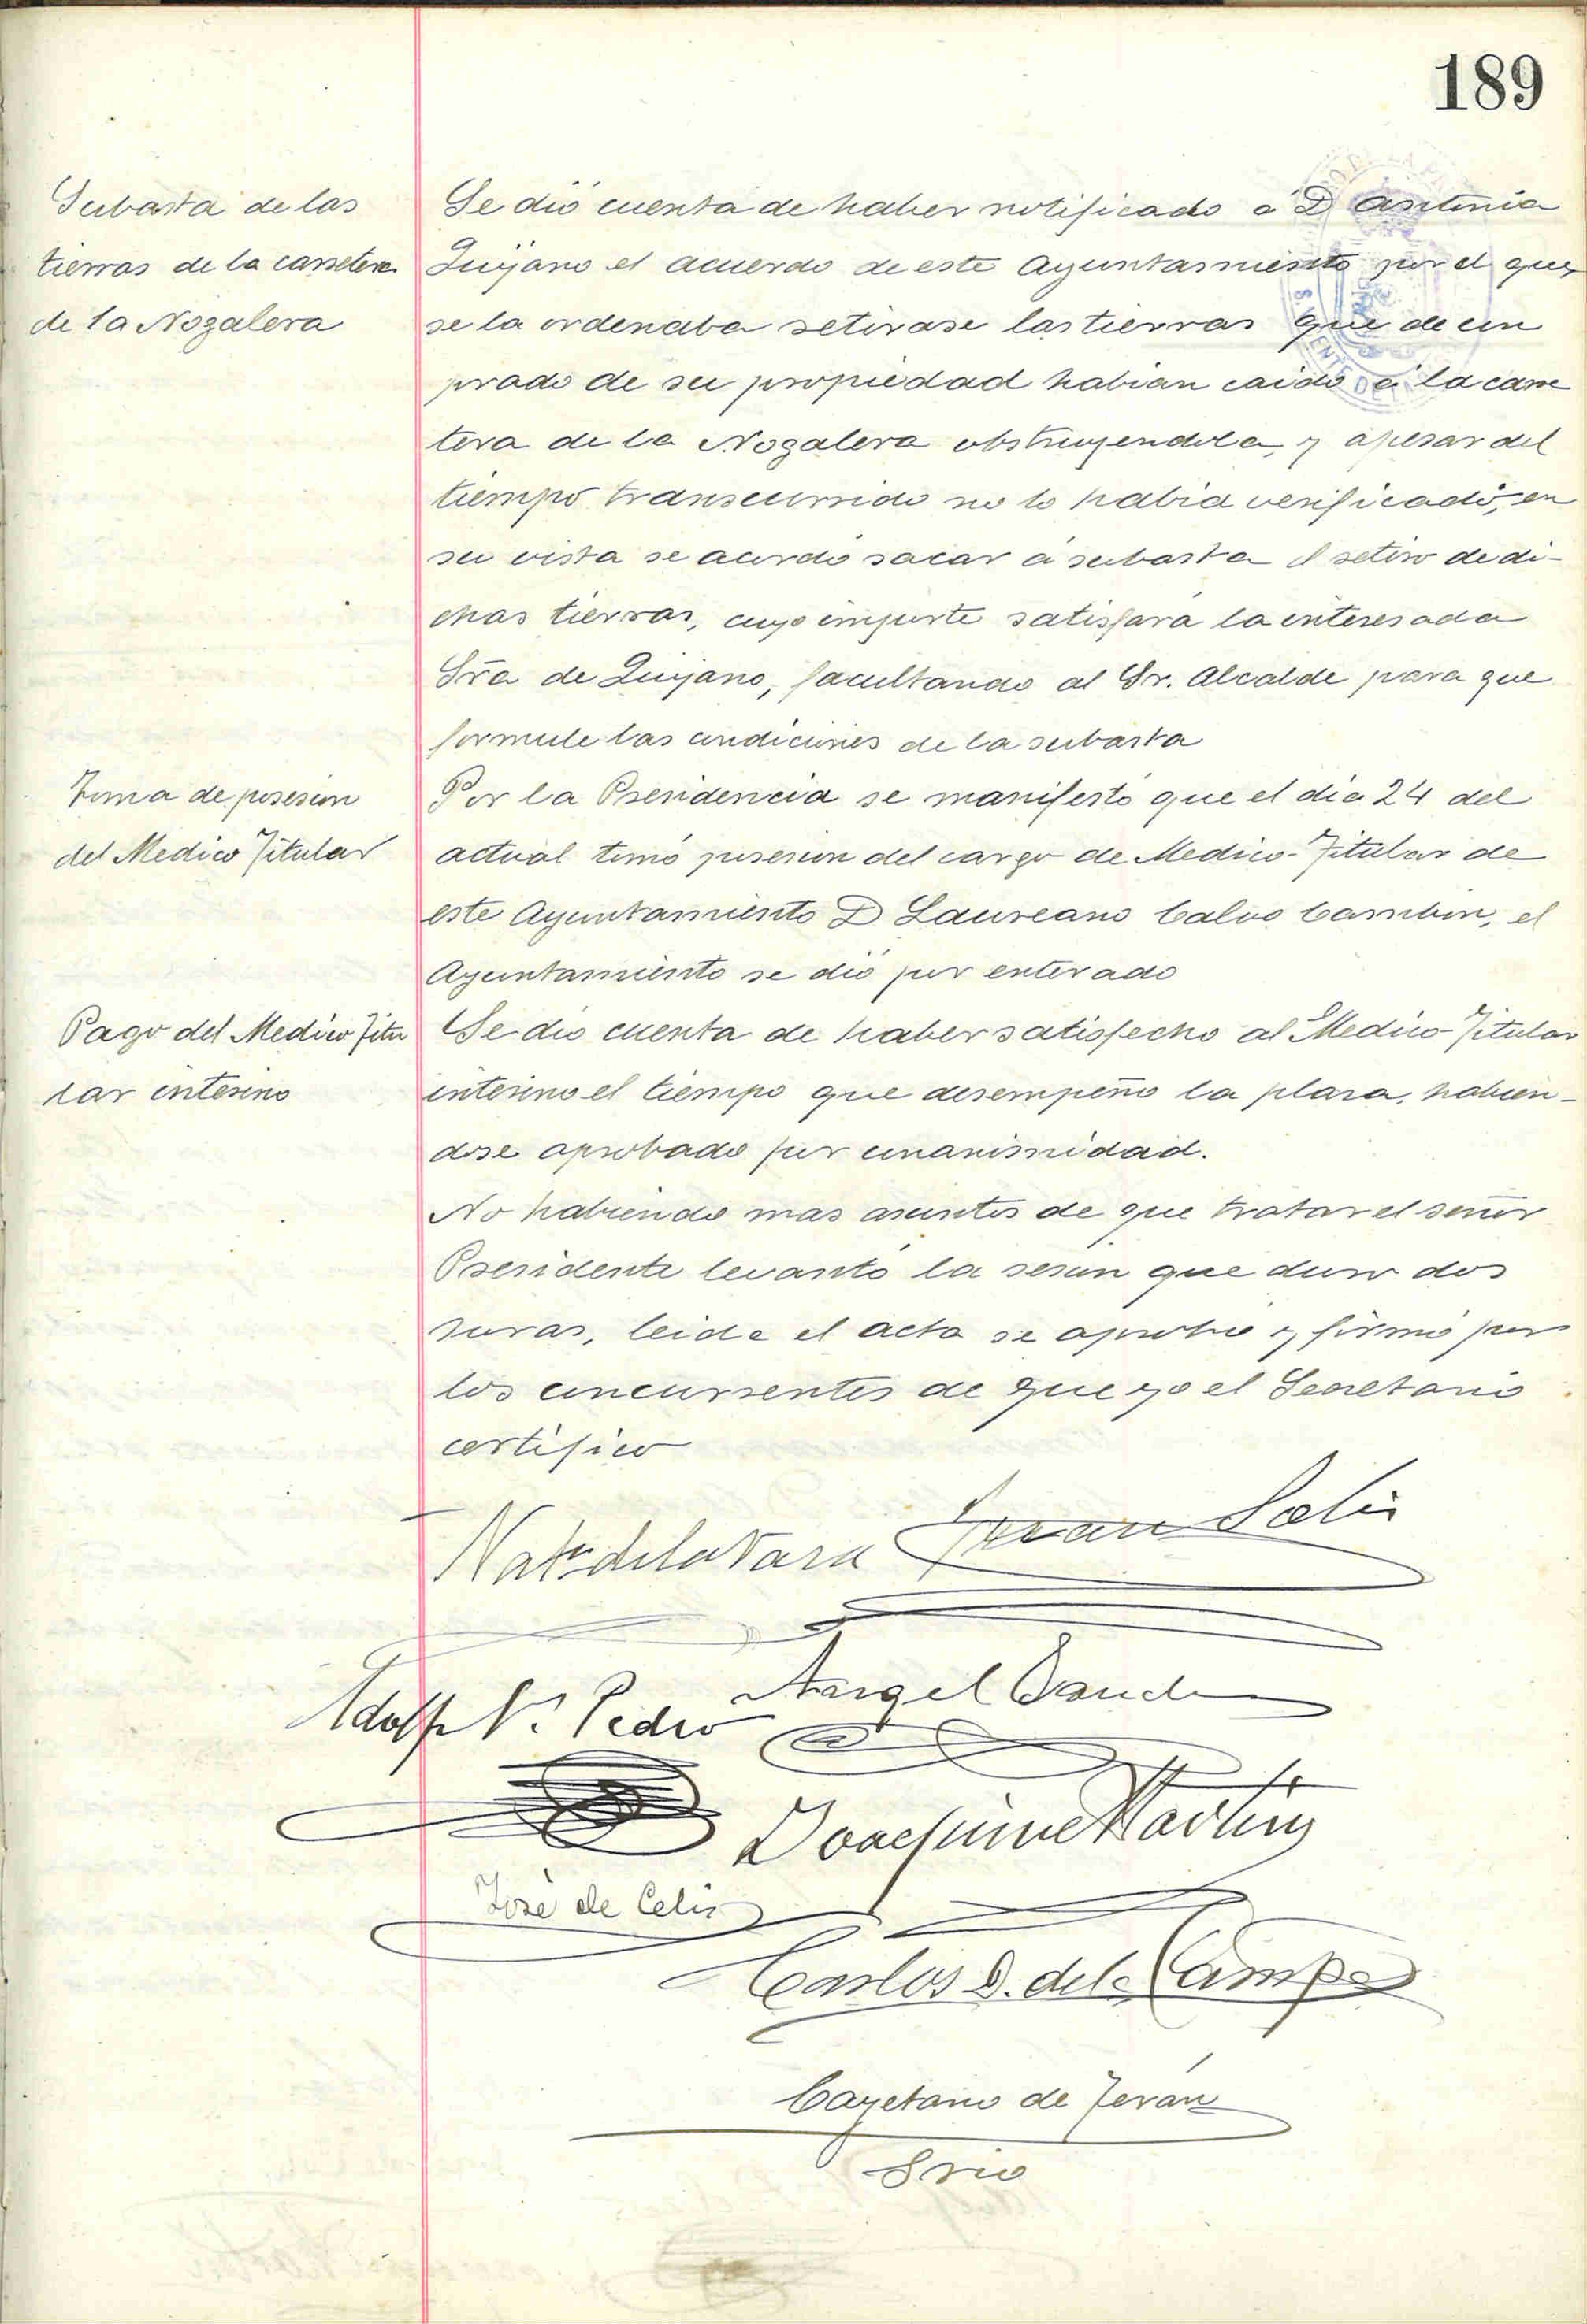 189
Subasta de las
tierras de la carretera
de la Nogalera
Se dió cuenta de haber notificado á Dª Antonia
Quijano el acuerdo de este Ayuntamiento por el que
se la ordenaba retirase las tierras que de un
prado de su propiedad habian caido á la carre
tera de la Nogalera obstruyendola, y apesar del
tiempo transcurrido no lo habia verificado, en
su vista se acordó sacar á subasta el retiro de di-
chas tierras, cuyo importe satisfara la interesada
Sra de Quijano, facultando al Sr. Alcalde para que
formule las condiciones de la subasta
Toma de posesion
del Medico Titular
Por la Presidencia se manifestó que el dia 24 del
actual tomó posesion del cargo de Medico-Titular de
este Ayuntamiento D Laureano Calvo, el
Ayuntamiento se dió por enterado
Pago del Medico Titu
lar interino
Se dio cuenta de haber satisfecho al Medico-Titular
interino el tiempo que desempeñó la plaza, habien-
dose aprobado por unanimidad.
No habiendo mas asuntos de que tratar el señor
Presidente levantó la sesion que duro dos
horas, leida el acta se aprobó y firmó por
los concurrentes de que yo el Secretario
certifico
de la Vara
Juan Solis
Angel
Adolfo V. Pedro
Martin
José de Celis
Carlos D. de la Campa
Cayetano de Teran
Srio